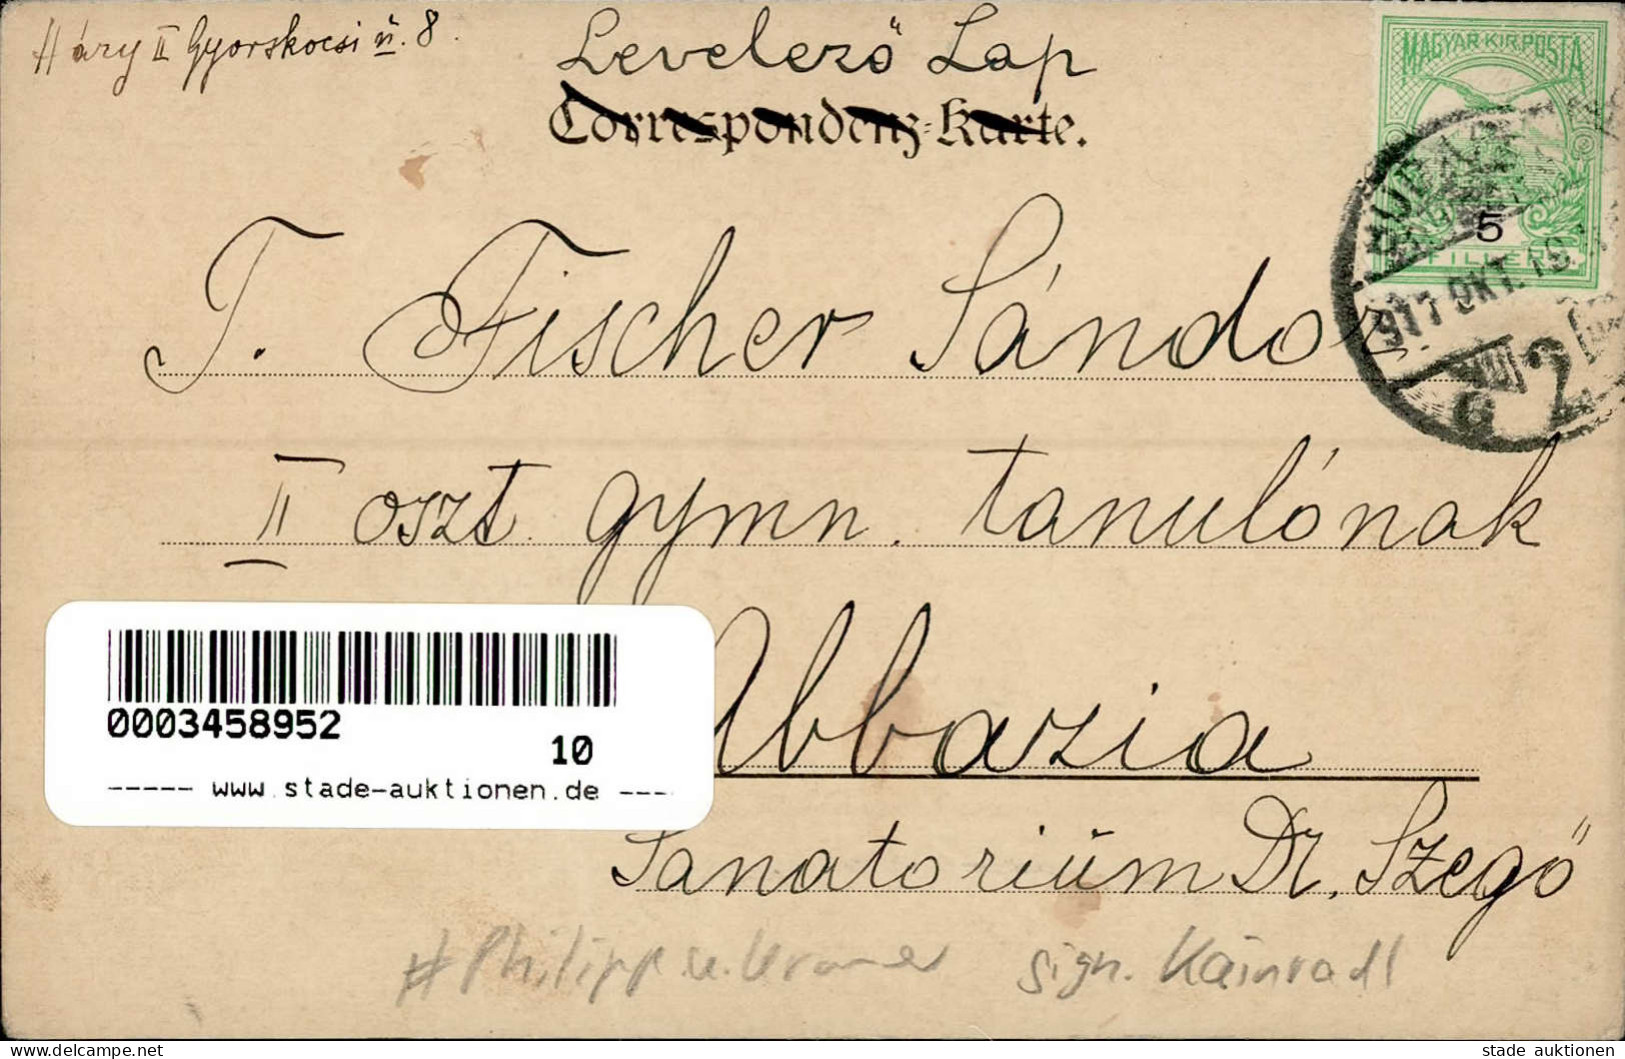 Háry II Gyorskocsi ú. 8.
Levelező Lap
Correspondenz-Karte.
MAGYAR·KIR·POSTA
5
FILLÉR
911 OKT. 19.
2
T. Fischer Sándor
II oszt gymn. tanulónak
Abbazia
Sanatorium Dr. Szegő
0003458952
10
----- www.stade-auktionen.de ----
# Philipp u. Kramer sign. Kainradl
hippostcard.com
stade auktionen